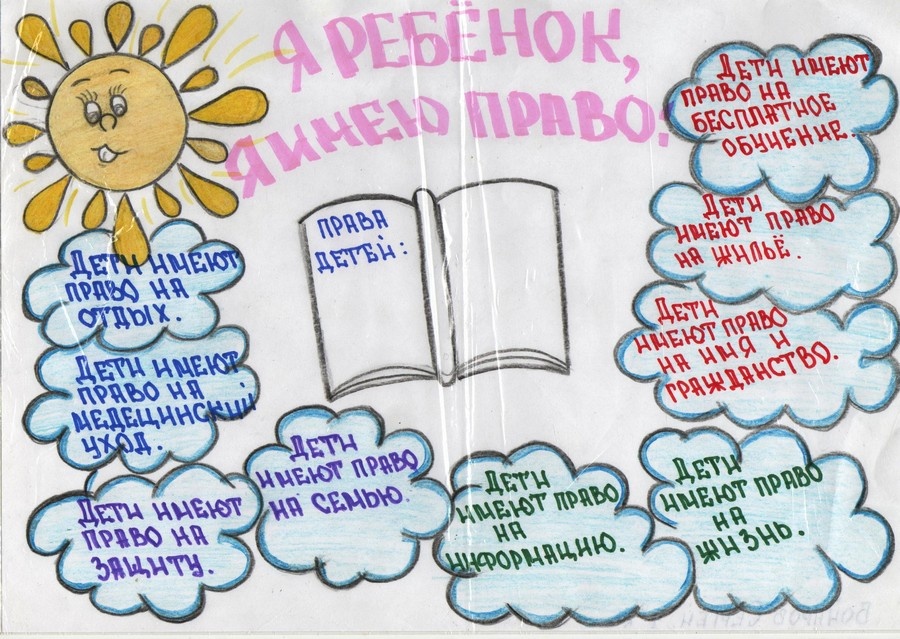 Я РЕБЁНОК,
Я ИМЕЮ ПРАВО:
ПРАВА
ДЕТЕЙ:
ДЕТИ ИМЕЮТ
ПРАВО НА
ОТДЫХ.
ДЕТИ ИМЕЮТ
ПРАВО НА
МЕДЕЦИНСКИЙ
УХОД.
ДЕТИ ИМЕЮТ
ПРАВО НА
ЗАЩИТУ.
ДЕТИ
ИМЕЮТ ПРАВО
НА СЕМЬЮ.
ДЕТИ
ИМЕЮТ ПРАВО
НА
ИНФОРМАЦИЮ.
ДЕТИ
ИМЕЮТ ПРАВО
НА
ЖИЗНЬ.
ДЕТИ ИМЕЮТ
ПРАВО НА
БЕСПЛАТНОЕ
ОБУЧЕНИЕ.
ДЕТИ
ИМЕЮТ ПРАВО
НА ЖИЛЬЁ.
ДЕТИ
ИМЕЮТ ПРАВО
НА ИМЯ И
ГРАЖДАНСТВО.